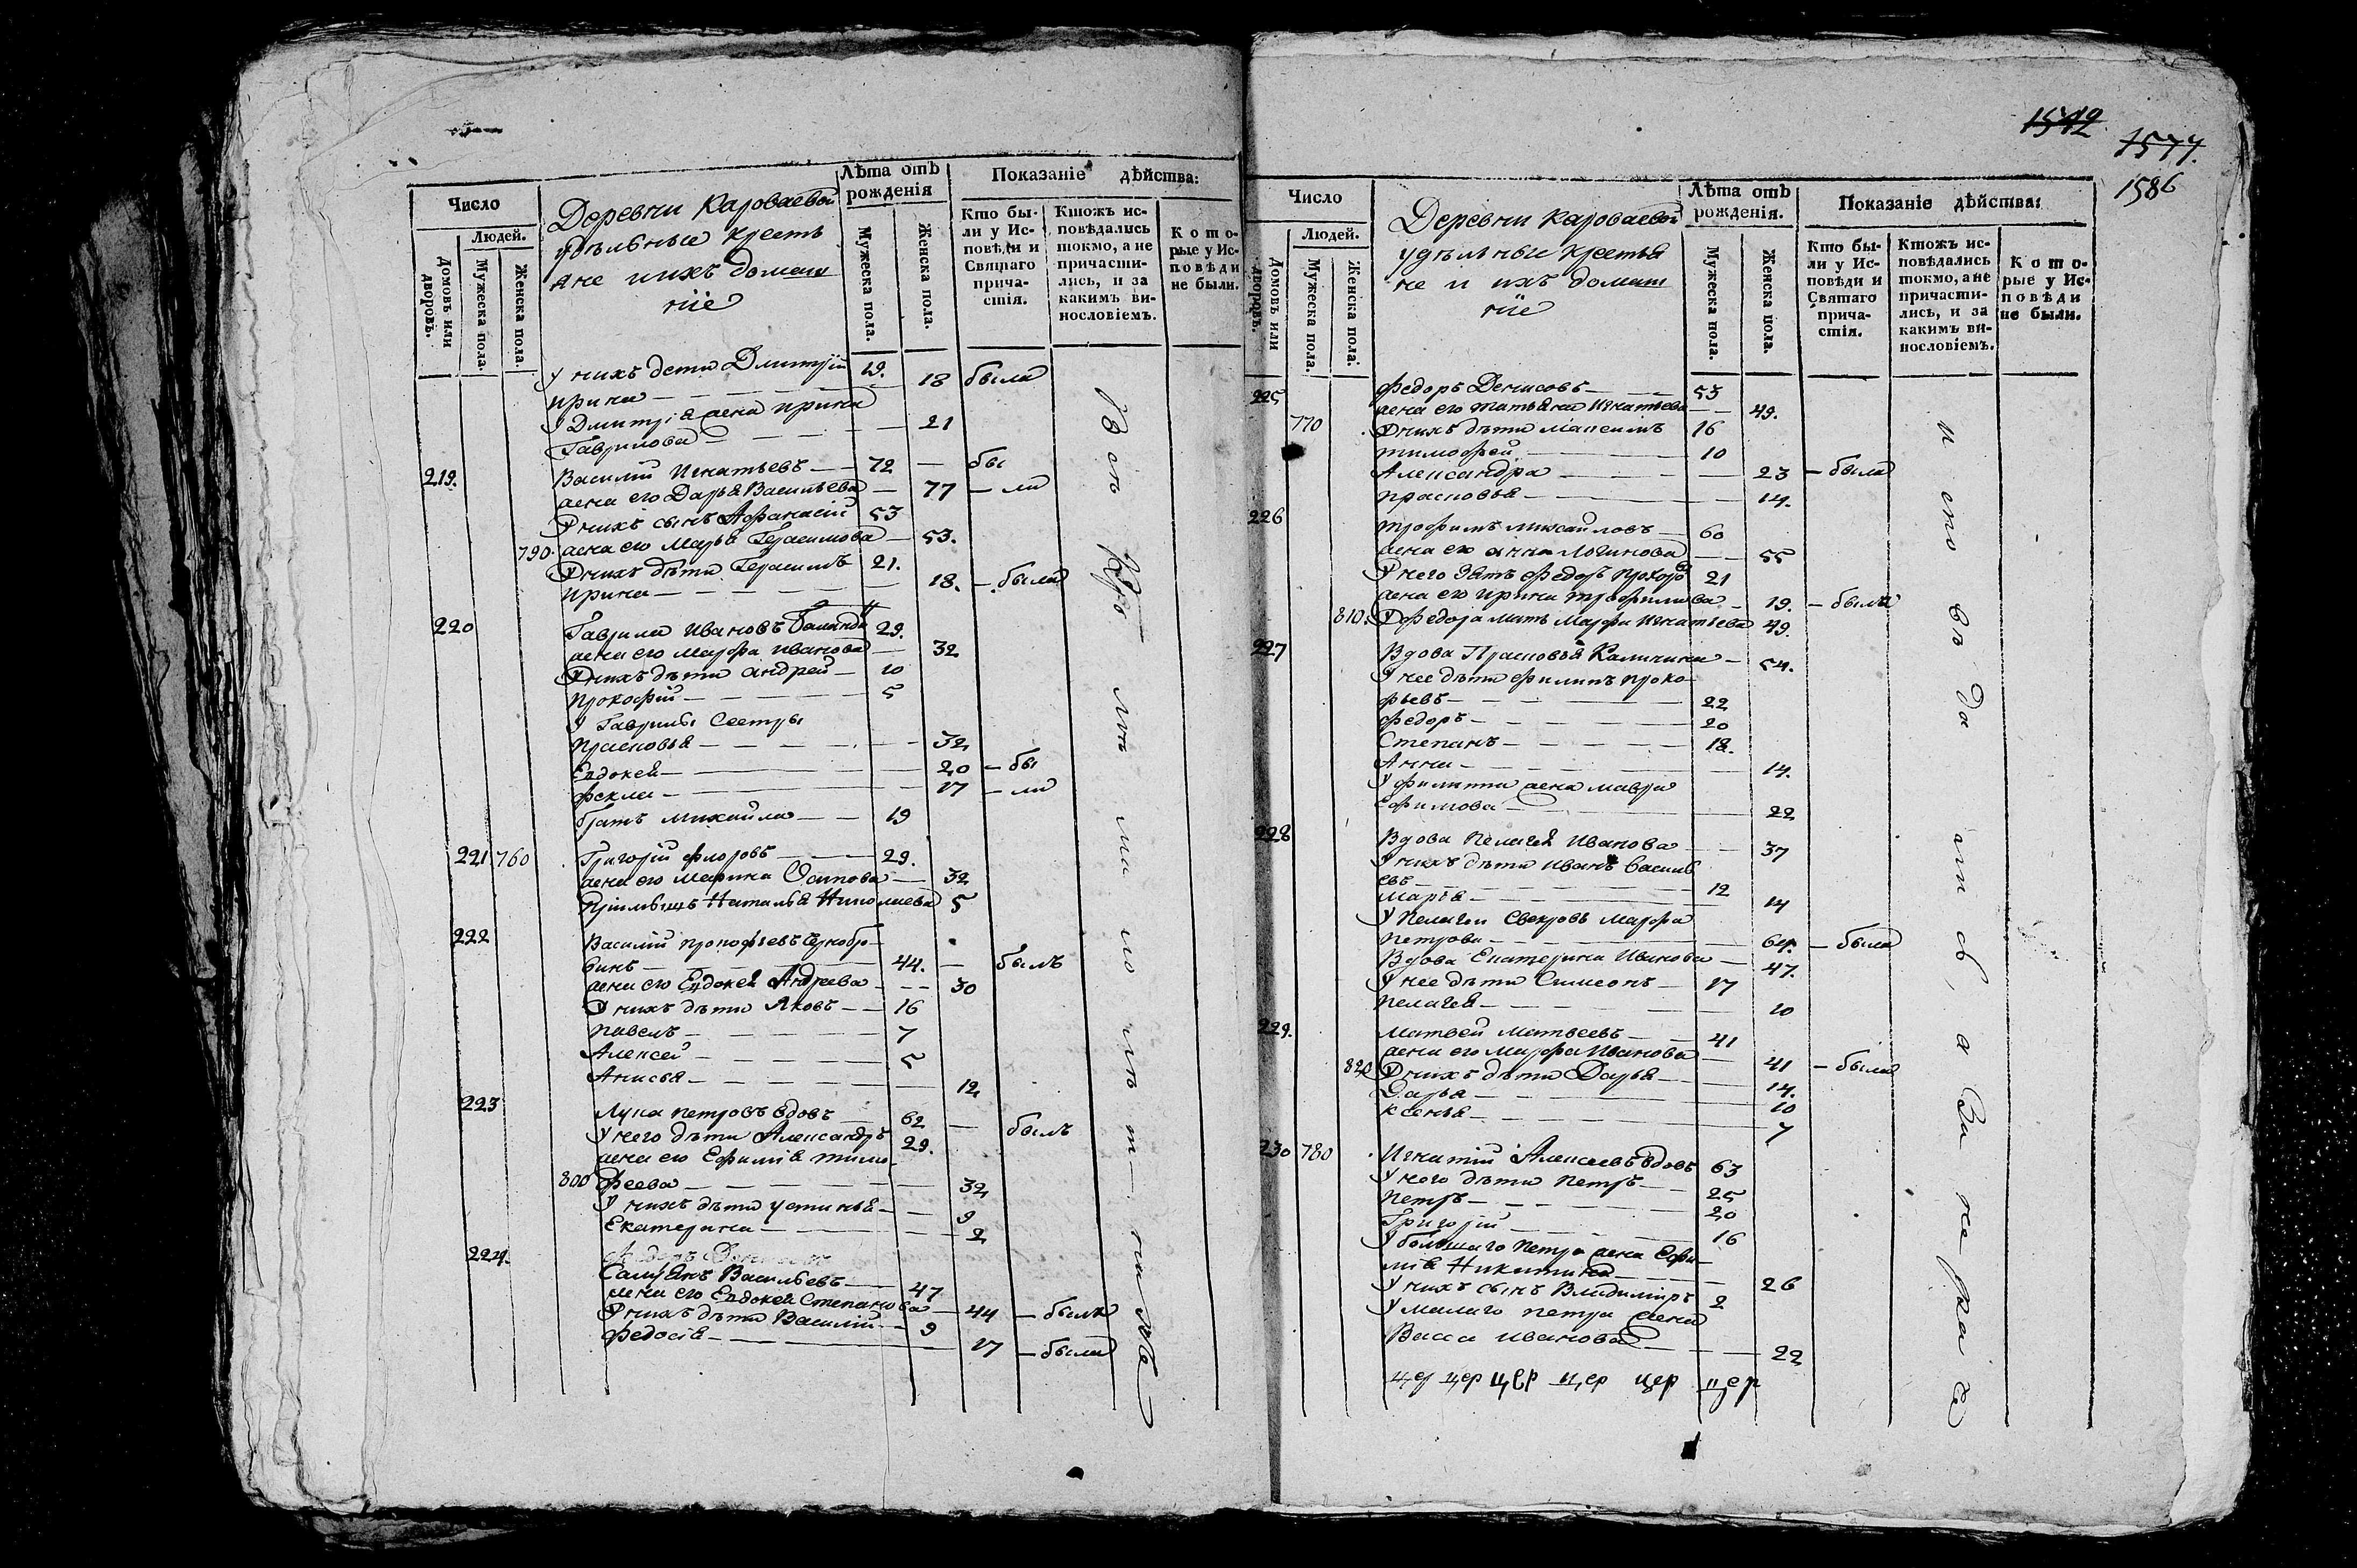 Число
Людей.
Домовъ или дворовъ.
Мужеска пола.
Женска пола.
Деревни Караваевой
удѣльные кресть
яне и ихъ домаш
ніе
Лѣта отъ рожденія
Мужеска пола.
Женска пола.
Показаніе дѣйства:
Кто бы-
ли у Ис-
повѣди и
Святаго
прича-
стія.
Ктожъ ис-
повѣдались
токмо, а не
причасти-
лись, и за
какимъ ви-
нословіемъ.
Кото-
рые у Ис-
повѣди
не были.
У нихъ дети Дмитрій 19.
Ирина 18 были
У Дмитрія жена Ирина
Гаврилова 21
219. Василій Игнатьевъ 72 бы
жена его Дарья Васильева 77 ли
У нихъ сынъ Афанасій 53
790. жена его Марья Герасимова 53.
У нихъ дѣти Герасимъ 21.
Ирина 18. были
220 Гаврила Ивановъ 29.
жена его Марфа Иванова 32
У нихъ дѣти Андрей 10
Прокофій 5
У Гаврилы Сестры
Прасковья 32
Евдокея 20 бы
Фекла 17 ли
братъ Михайла 19
221 760 Григорій Флоровъ 29.
жена его Марина Осипова 32
Наталья Николаева 5
222 Василій Прокофьевъ Чернобро-
винъ 44. былъ
жена его Евдокея Андреева 30
У нихъ дѣти Яковъ 16
Павелъ 7
Алексей 5
Анисья 12
223 Лука Петровъ вдовъ 62 былъ
У него дѣти Александръ 29.
жена его Ефимія Тимо-
800 феева 32
У нихъ дѣти Устинья 9
Екатерина 2
224. Васильевъ 47
жена его Евдокея Степанова 44 были
У нихъ дѣти Василій 9
Федосія 17 были
1542
1577.
1586
Число
Людей.
Домовъ или дворовъ.
Мужеска пола.
Женска пола.
Деревни Караваевой
удѣльные крестья
не и ихъ домаш
ніе
Лѣта отъ рожденія.
Мужеска пола.
Женска пола.
Показаніе дѣйства:
Кто бы-
ли у Ис-
повѣди и
Святаго
прича-
стія.
Ктожъ ис-
повѣдались
токмо, а не
причасти-
лись, и за
какимъ ви-
нословіемъ.
Кото-
рые у Ис-
повѣди
не были.
225 Федоръ Денисовъ 53
жена его Татьяна Игнатьева 49.
770 У нихъ дѣти Максимъ 16
Тимофей 10
Александра 23 были
Прасковья 14.
226 Трофимъ Михайловъ 60
жена его Анна Логинова 55
У него зять Федоръ Прохоро 21
жена его Ирина Трофимова 19. были
810. У Федора мать Марфа Игнатьева 49.
227 Вдова Прасковья Калинина 54.
У нее дѣти Филипъ Проко-
фьевъ 22
Федоръ 20
Степанъ 18.
Анна 14.
У Филиппа жена Мавра
Ефимова 22
228 Вдова Пелагея Иванова 37
У нихъ дѣти Иванъ Василь
евъ 12
Марья 14
У Пелагеи Свекровь Марфа
Петрова 64. были
Вдова Екатерина Иванова 47.
У нее дѣти Симеонъ 17
Пелагея 10
229. Матвей Матвеевъ 41
жена его Марфа Иванова 41 были
820 У нихъ дѣти Дарья 14.
Дарья 10
Ксенья 7
230 780 Игнатій Алексеевъ вдовъ 63
У него дѣти Петръ 25
Петръ 20
Григорій 16
У большаго Петра жена Ефи-
мія Никитина 26
У нихъ сынъ Владимиръ 2
У малаго Петра жена
Васса Иванова 22
цер цер цер цер цер цер